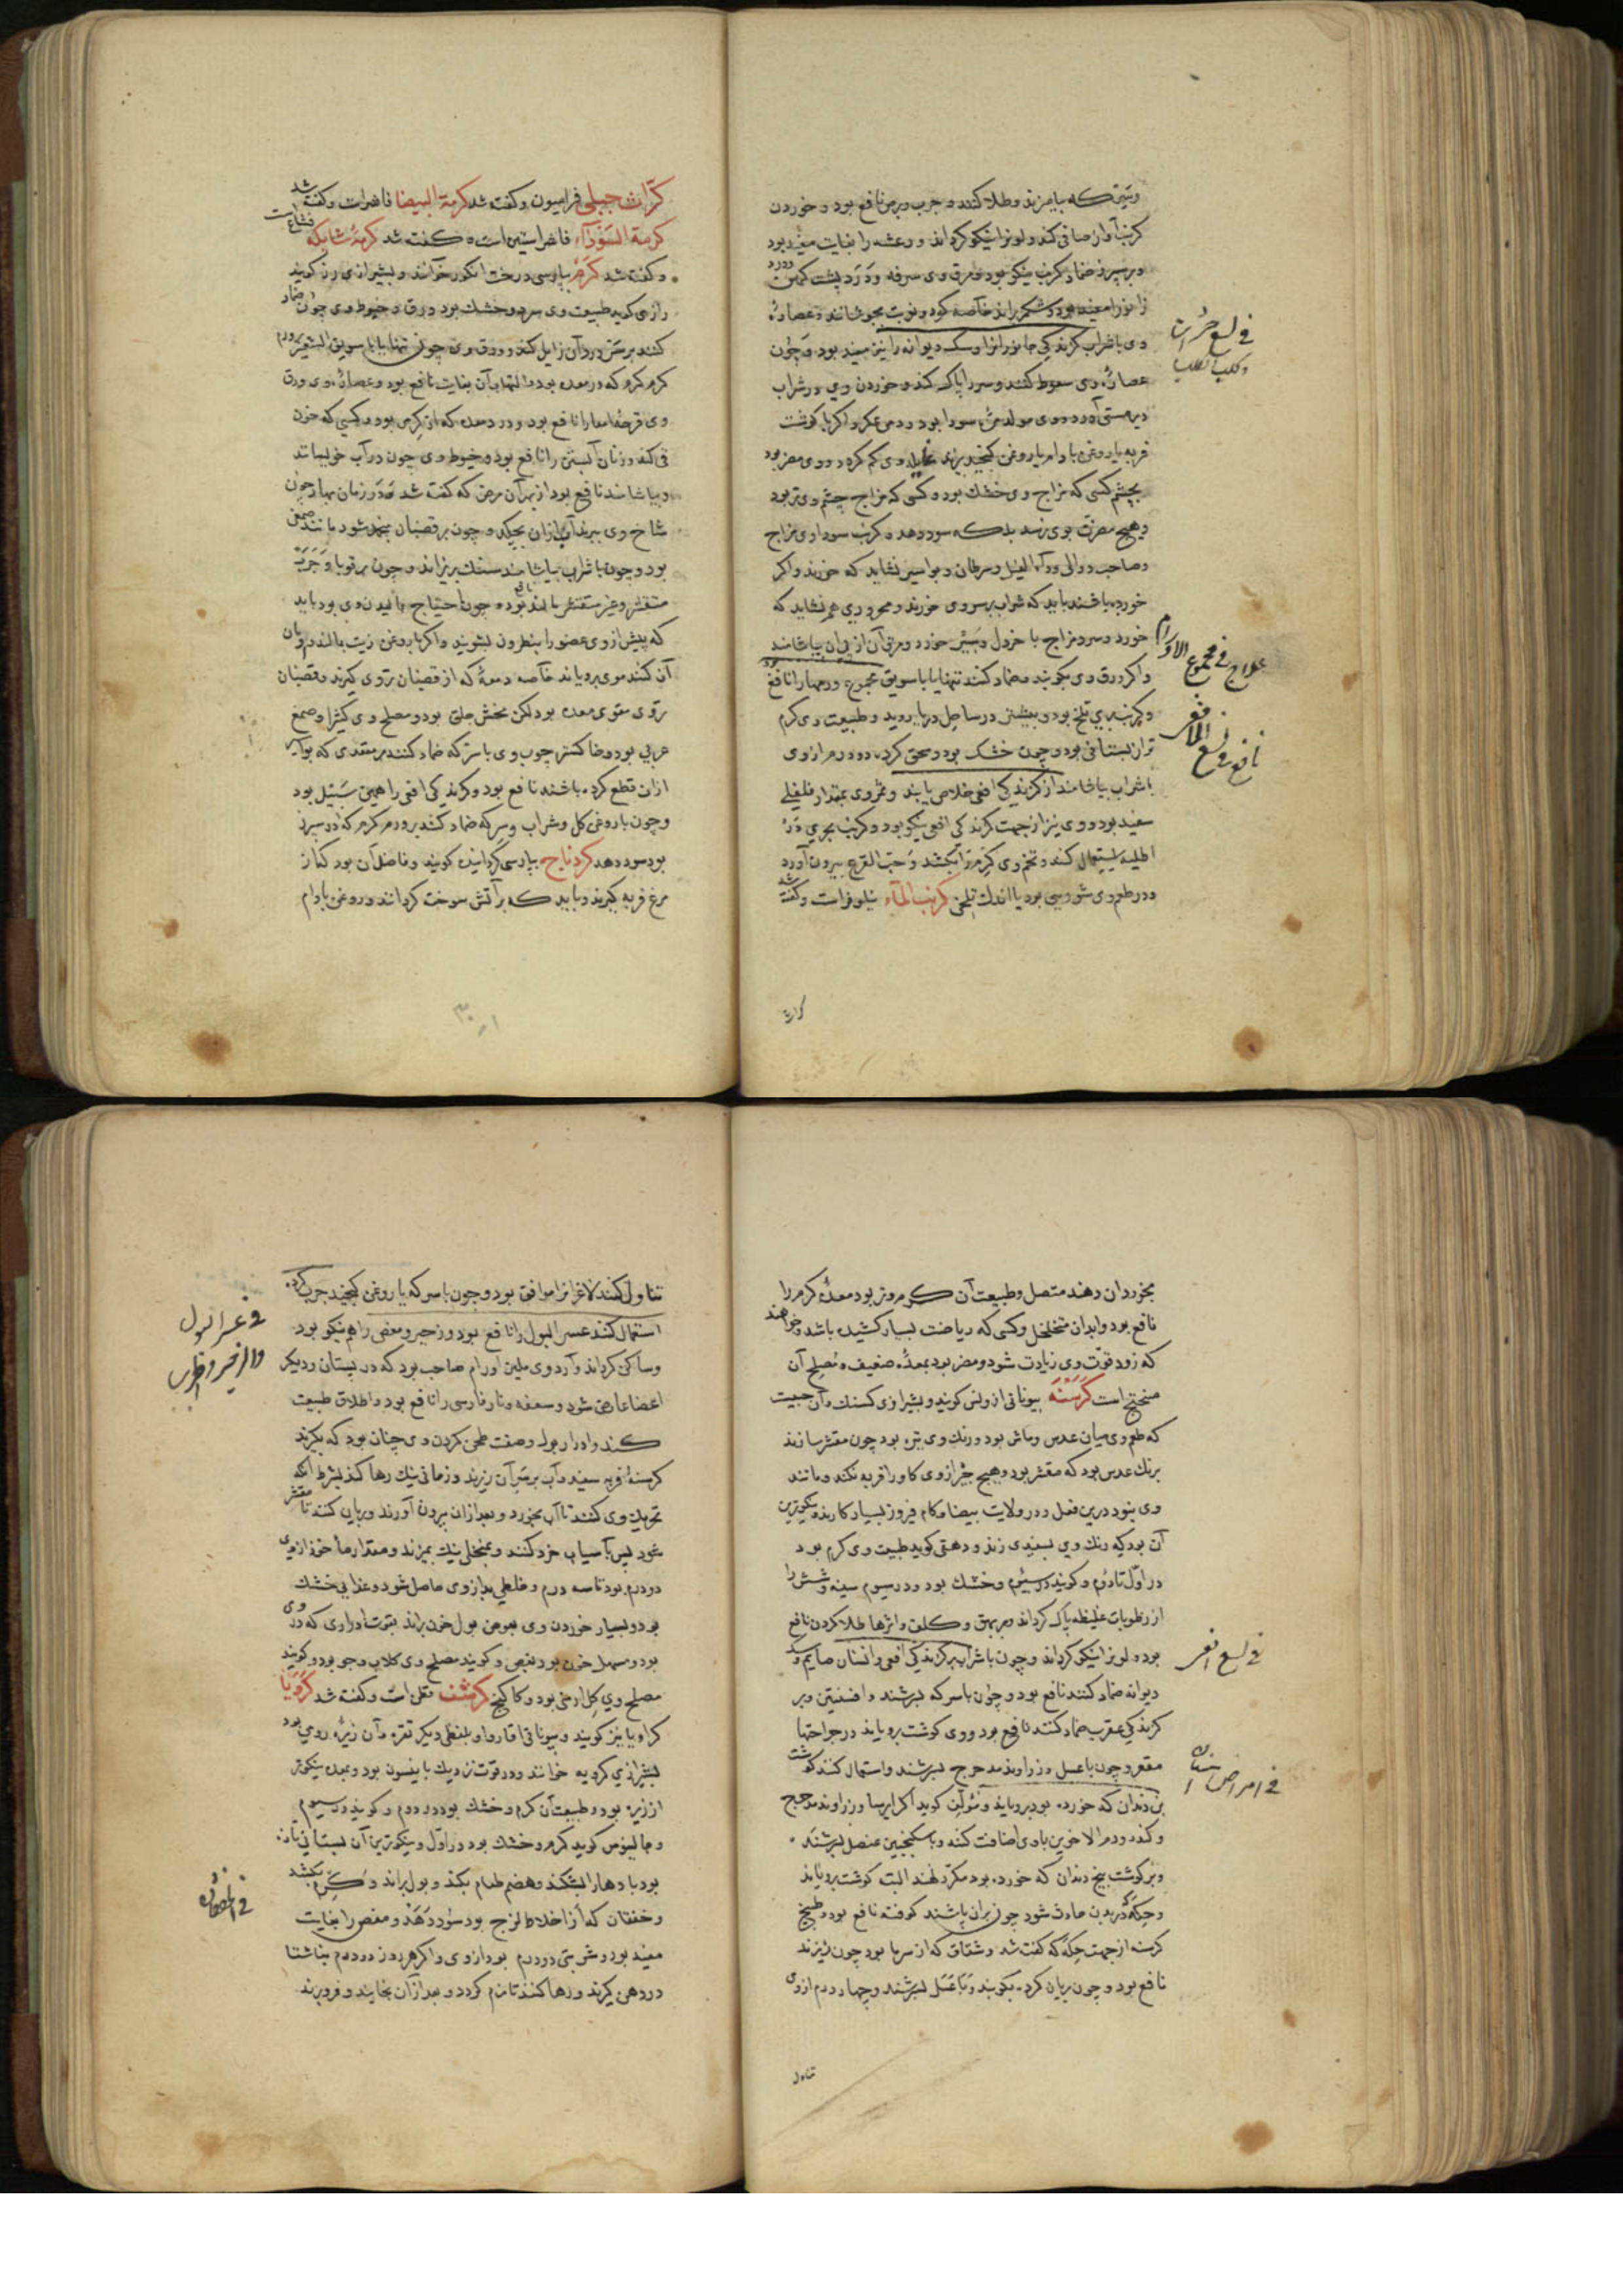 و سرکه بیامیزند و طلا کنند و جرب و برص نافع بود و خوردن
کرنب آواز صافی کند و لون را نیکو گرداند و رعشه را بغایت مفید بود
و بر سپرز ضماد کردن نیکو بود و مرق وی سرفه و درد پشت کهن و درد
زانو را مفید بود و شکم براند خاصه که دو نوبت بجوشانند و عصاره
وی با شراب گزندگی جانوران و سگ دیوانه را نیز مفید بود و چون
عصاره وی سعوط کنند و سر را پاک کند و خوردن وی در شراب
دیر مستی آورد و وی مولد مره سودا بود و دمی عکر و اگر با گوشت
فربه یا روغن بادام یا روغن کنجد بپزند وی کم گردد و وی مضر بود
بچشم کسی که مزاج وی خشک بود و کسی که مزاج چشم وی تر بود
و هیچ مضرت بوی نرسد بلکه سود دهد و کرنب سوداوی مزاج
و صاحب دوالی و داء الفیل و سرطان و بواسیر نشاید که خورند و اگر
خورده باشند باید که شراب بر سر وی خورند و محروری هم نشاید که
خورد و سرد مزاج با خردل و سیر خورد و مرق آن از پی آن بیاشامند
و اگر ورق وی بکوبند و ضماد کنند تنها یا با سویق مجموع ورمها را نافع بود
و کرنب بری تلخ بود و بیشتر در ساحل دریا روید و طبیعت وی گرم
تر از بستانی بود و چون خشک بود و سحق کرده دو درم از وی
با شراب بیاشامند از گزندگی افعی خلاص یابند و ثمر وی بمقدار فلفلی
سفید بود و وی نیز از جهت گزندگی افعی نیکو بود و کرنب بحری در
اطلیه استعمال کنند و تخم وی کرم را بکشد و حب القرع بیرون آورد
و در طعم وی شوریی بود با اندک تلخی کرنب الماء نیلوفر است و گفته شد
کراث
فی لسع
و کلب الکلب
علاج فی مجموع الاورام
نافع فی لسع الافعی
کراث جبلی فراسیون و گفته شد کرمة البیضا فاشرا است و گفته شد
کرمة السوداء فاشرستین است و گفته شد کرمة شایکه فشاغ است
و گفته شد کرم بپارسی درخت انگور خوانند و بشیرازی رز گویند
رازی گوید طبیعت وی سرد و خشک بود و ورق و خیوط وی چون ضماد
کنند بر سر درد آن زایل کند و ورق وی چون تنها یا با سویق الشعیر بر ورم
گرم که در معده بود و التهاب آن بغایت نافع بود و عصاره وی ورق
وی قرحه امعا را نافع بود و درد معده که از گرمی بود و کسی که خون
قی کند و زنان آبستن را نافع بود و خیوط وی چون در آب خویسانند
و بیاشامند نافع بود از بهر آن مرض که گفته شد و در زمان بهار چون
شاخ وی ببرند آب از آن بچکد و چون بر قضبان منجمد شود مانند صمغی
بود و چون با شراب بیاشامند سنگ بریزاند و چون بر قوبا و جرب
متقشر و غیر متقشر بمالند نافع بود و چون احتیاج بمالیدن وی بود باید
که پیش از وی عضو را بنطرون بشویند و اگر با روغن زیت بمالند و مان
آن کنند موی برویاند خاصه دمعه که از قضبان تروی گیرند و قضبان
تروی مقوی معده بود لکن مخش حلق بود و مصلح وی کثیرا و صمغ
عربی بود و خاکستر چوب وی با سرکه ضماد کنند بر مقعدی که بواسیر
از آن قطع کرده باشند نافع بود و گزندگی افعی را همین سبیل بود
و چون با روغن گل و شراب و سرکه ضماد کنند بر ورم گرم که در سپرز
بود سود دهد کردناج بپارسی گردانیده گویند و فاضل آن بود که از
مرغ فربه گیرند و باید که بر آتش سوخت گردانند و روغن بادام
بخورد آن دهند متصل و طبیعت آن گرم و تر بود معده گرم را
نافع بود و ابدان متخلخل و کسی که ریاضت بسیار کشیده باشد و خواهند
که زود قوت وی زیادت شود و مضر بود بمعده ضعیف و مصلح آن
میختج است کرسنه بیونانی ارونس گویند و بشیرازی کسنک و آن حبیست
که طعم وی میان عدس و ماش بود و رنگ وی تیره بود چون مقشر سازند
برنگ عدس بود که مقشر بود و هیچ چیز از وی گاو را فربه نکند و مانند
وی نبود درین فعل و در ولایت بیضا و کام فیروز بسیار کارند و نیکوترین
آن بود که رنگ وی بسفیدی زند و دهقی گوید طبیعت وی گرم بود
در اول تا دوم و گویند در سیوم و خشک بود و در سیوم سینه و شش را
از رطوبات غلیظه پاک گرداند و بر بهق و کلف و اثرها طلا کردن نافع
بود و لون را نیکو گرداند و چون با شراب بر گزندگی افعی و انسان صایم و سگ
دیوانه ضماد کنند نافع بود و چون با سرکه بسرشند و افسنتین و بر
گزندگی عقرب ضماد کنند نافع بود و وی گوشت برویاند در جراحتها
مقعر و چون با عسل و زراوند مدحرج بسرشند و استعمال کنند گوشت
بن دندان که خورده بود برویاند و مولف گوید اگر ایرسا و زراوند مدحرج
و کندر و دم الاخوین با وی اضافت کنند و با سکنجبین عنصل بسرشند
و بر گوشت بیخ دندان که خورده بود مکرر نهند البته گوشت برویاند
و حکه که در بدن حادث شود چون بر آن پاشند کوفته نافع بود و طبیخ
کرسنه از جهت حکه که گفته شد و شقاق که از سرما بود چون بریزند
نافع بود و چون بریان کرده بکوبند و با عسل بسرشند و چهار درم از وی
تناول
فی لسع افعی
فی امراض اسنان
تناول کنند لاغران را موافق بود و چون با سرکه یا روغن کنجد چرب کرده
استعمال کنند عسر البول را نافع بود و زحیر و مغص را هم نیکو بود
و ساکن گرداند و آرد وی ملین اورام صلب بود که در پستان و دیگر
اعضا عارض شود و سعفه و نار فارسی را نافع بود و اطلاق طبیعت
کند و ادرار بول و صفت طحن کردن وی چنان بود که بگیرند
کرسنه فربه سفید و آب بر سر آن ریزند و زمانی نیک رها کنند بشرط آنکه
تحریک وی کنند تا آب بخورد و بعد از آن بیرون آورند و بریان کنند تا مقشر
شود پس بآسیاب خرد کنند و بمنخلی نیک ببیزند و مقدار ماخوذ از وی
دو درم بود تا سه درم و خلطی بد از وی حاصل شود و غذایی خشک
بود و بسیار خوردن وی بعوض بول خون براند بقوت ادراری که در وی
بود و مسهل خون بود بمغص و گویند مصلح وی گلاب و جو بود و گویند
مصلح وی گل ارمنی بود و کاکنج کرشف قطن است و گفته شد کرویا
کراویا نیز گویند و بیونانی اقاروا و بلفظی دیگر تقره و آن زیره رومی بود
بشیرازی کرویه خوانند و در قوت نزدیک بانیسون بود و بمعده نیکوتر
از زیره بود و طبیعت آن گرم و خشک بود در دوم و گویند در سیوم
و جالینوس گوید گرم و خشک بود در اول و نیکوترین آن بستانی تازه
بود بادها را بشکند و هضم طعام بکند و بول براند و کرم بکشد
و خفقان که از اخلاط لزج بود سود دهد و مغص را بغایت
مفید بود و شربتی دو درم بود از وی و اگر هر روز دو درم بناشتا
در دهن گیرند و رها کنند تا نرم گردد و بعد از آن بخایند و فرو برند
فی عسر البول
و الزحیر و المغص
فی الخفقان